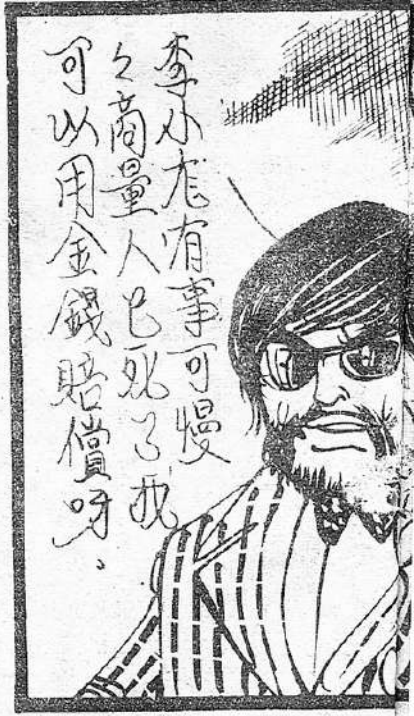 李小尨有事可慢
々商量人已死了我
可以用金錢賠償呀、